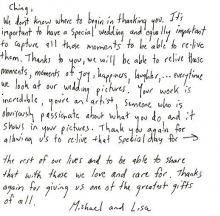 Ching,
We don't know where to begin in thanking you. It's
important to have a special wedding and equally important
to capture all those moments to be able to relive
them. Thanks to you, we will be able to relive those
moments, moments of joy, happiness, laughter,... everytime
we look at our wedding pictures. Your work is
incredible, you're an artist, someone who is
obviously passionate about what you do, and it
shows in your pictures. Thank you again for
allowing us to relive that special day for →
the rest of our lives and to be able to share
that with those we love and care for. Thanks
again for giving us one of the greatest gifts
of all.
Michael and Lisa